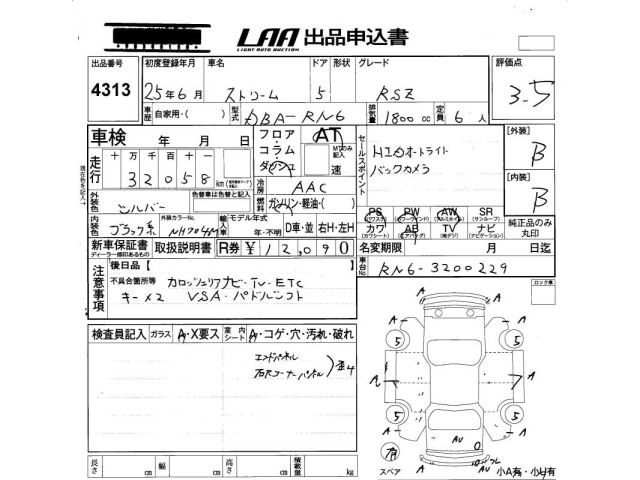 LAA 出品申込書
LIGHT AUTO AUCTION
出品番号 初度登録年月 車名 ドア 形状 グレード 評価点
4313 25年6月 ストリーム 5 RSZ 3.5
車歴 自家用・( ) 型式 DBA-RN6 排気量 1800cc 定員 6人
車検 年 月 日
フロア・コラム・ダッシュ AT MTのみ記入 速
セールスポイント
HIDオートライト
バックカメラ
[外装] B
[内装] B
走行 十万千百十一
32058 km
現在色を記入
冷房 AAC
燃料 ガソリン・軽油・( )
外装色 シルバー 色替車は色替と記入
内装色 ブラック系 外装カラーNo. NH704M
輸入車 モデル年式 年・不明 D車・並 右H・左H
PS (パワステ) PW (パワーウインド) AW (アルミホイル) SR (サンルーフ)
カワ (カワシート) AB (エアバッグ) TV (地デジ) ナビ (ナビゲーション)
純正品のみ丸印
新車保証書 ディーラー捺印あるもの 取扱説明書 R券 ¥12,090
名変期限 月 日迄
車台No. RN6-3200229
注意事項
後日品【 】
不具合箇所等 カロッツェリアナビ・TV・ETC
キー×2 VSA・パドルシフト
ロック車
検査員記入 ガラス A・X要ス 室内シート A・コゲ・穴・汚れ・破れ
エンドパネル
右Rコーナーパネル 歪4
A A
5 5
A A
A A
5 5
AU
A A
スペア 有
小A有・小U有
長さ cm 幅 cm 高さ cm 積載量 kg